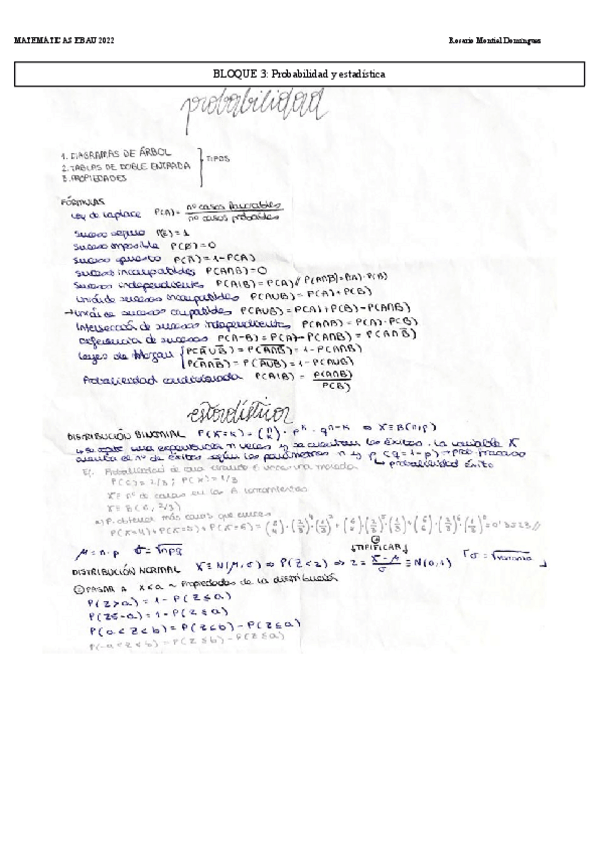 MATEMÁTICAS EBAU 2022 Rosario Montiel Dominguez
BLOQUE 3: Probabilidad y estadística
probabilidad
1. DIAGRAMAS DE ÁRBOL
2. TABLAS DE DOBLE ENTRADA } TIPOS
3. PROPIEDADES
FÓRMULAS
Ley de Laplace P(A) = nº casos favorables / nº casos probables
Suceso seguro P(E) = 1
Suceso imposible P(Ø) = 0
Suceso opuesto P(A̅) = 1 - P(A)
Sucesos incompatibles P(A∩B) = 0
Sucesos independientes P(A|B) = P(A) // P(A∩B) = P(A)·P(B)
Unión de sucesos incompatibles P(A∪B) = P(A) + P(B)
→ Unión de sucesos compatibles P(A∪B) = P(A) + P(B) - P(A∩B)
Intersección de sucesos independientes P(A∩B) = P(A)·P(B)
Diferencia de sucesos P(A-B) = P(A) - P(A∩B) = P(A∩B̅)
Leyes de Morgan { P(A̅∪B̅) = P(A∩B)‾ = 1 - P(A∩B)
P(A̅∩B̅) = P(A∪B)‾ = 1 - P(A∪B)
Probabilidad condicionada P(A|B) = P(A∩B) / P(B)
estadística
DISTRIBUCIÓN BINOMIAL P(X=k) = (n k) · p^k · q^n-k ⇒ X≡B(n,p)
Se repite una experiencia n veces y se cuentan los éxitos. La variable X
cuenta el nº de éxitos según los parámetros n y p (q=1-p) → prob. fracaso
↳ probabilidad éxito
Ej. Probabilidad de cara cuando 6 una moneda
P(C) = 2/3 ; P(X) = 1/3
X≡ nº de caras en los 6 lanzamientos
X≡ B(6, 2/3)
a) P. obtener más caras que cruces
μ = n·p σ = √npq
TIPIFICAR
DISTRIBUCIÓN NORMAL X≡N(μ,σ) ⇒ P(Z<z) ⇒ Z = X-μ / σ ≡ N(0,1) σ = √varianza
PASAR A X<a ~ Propiedades de la distribución
P(Z>a) = 1 - P(Z≤a)
P(Z≤-a) = 1 - P(Z≤a)
P(a<Z<b) = P(Z≤b) - P(Z≤a)
P(-a<Z<b) = P(Z≤b) - P(Z≤a)